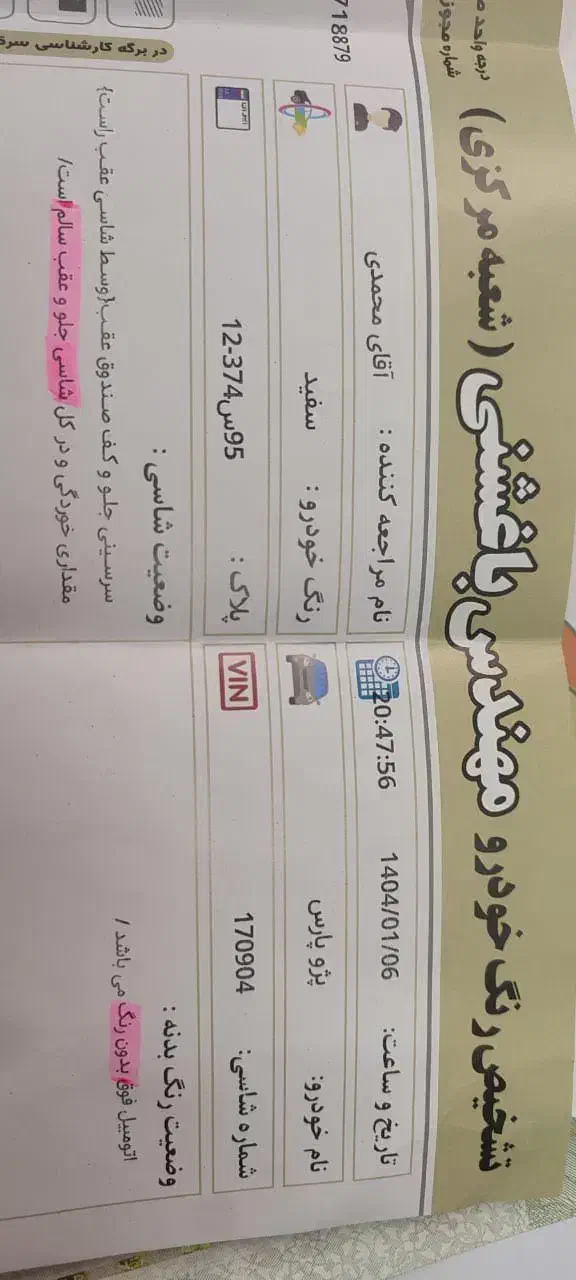 درجه واحد ص
شماره مجوز
تشخیص رنگ خودرو مهندس باغشنی ( شعبه مرکزی )
718879
تاریخ و ساعت: 1404/01/06 20:47:56
نام مراجعه کننده : آقای محمدی
نام خودرو: پژو پارس
رنگ خودرو : سفید
شماره شاسی: 170904
VIN
پلاک : 95س374-12
وضعیت رنگ بدنه :
اتومبیل فوق بدون رنگ می باشد /
وضعیت شاسی :
سرسینی جلو و کف صندوق عقب{وسط شاسی عقب راست}
مقداری خوردگی و در کل شاسی جلو و عقب سالم است/
در برگه کارشناسی